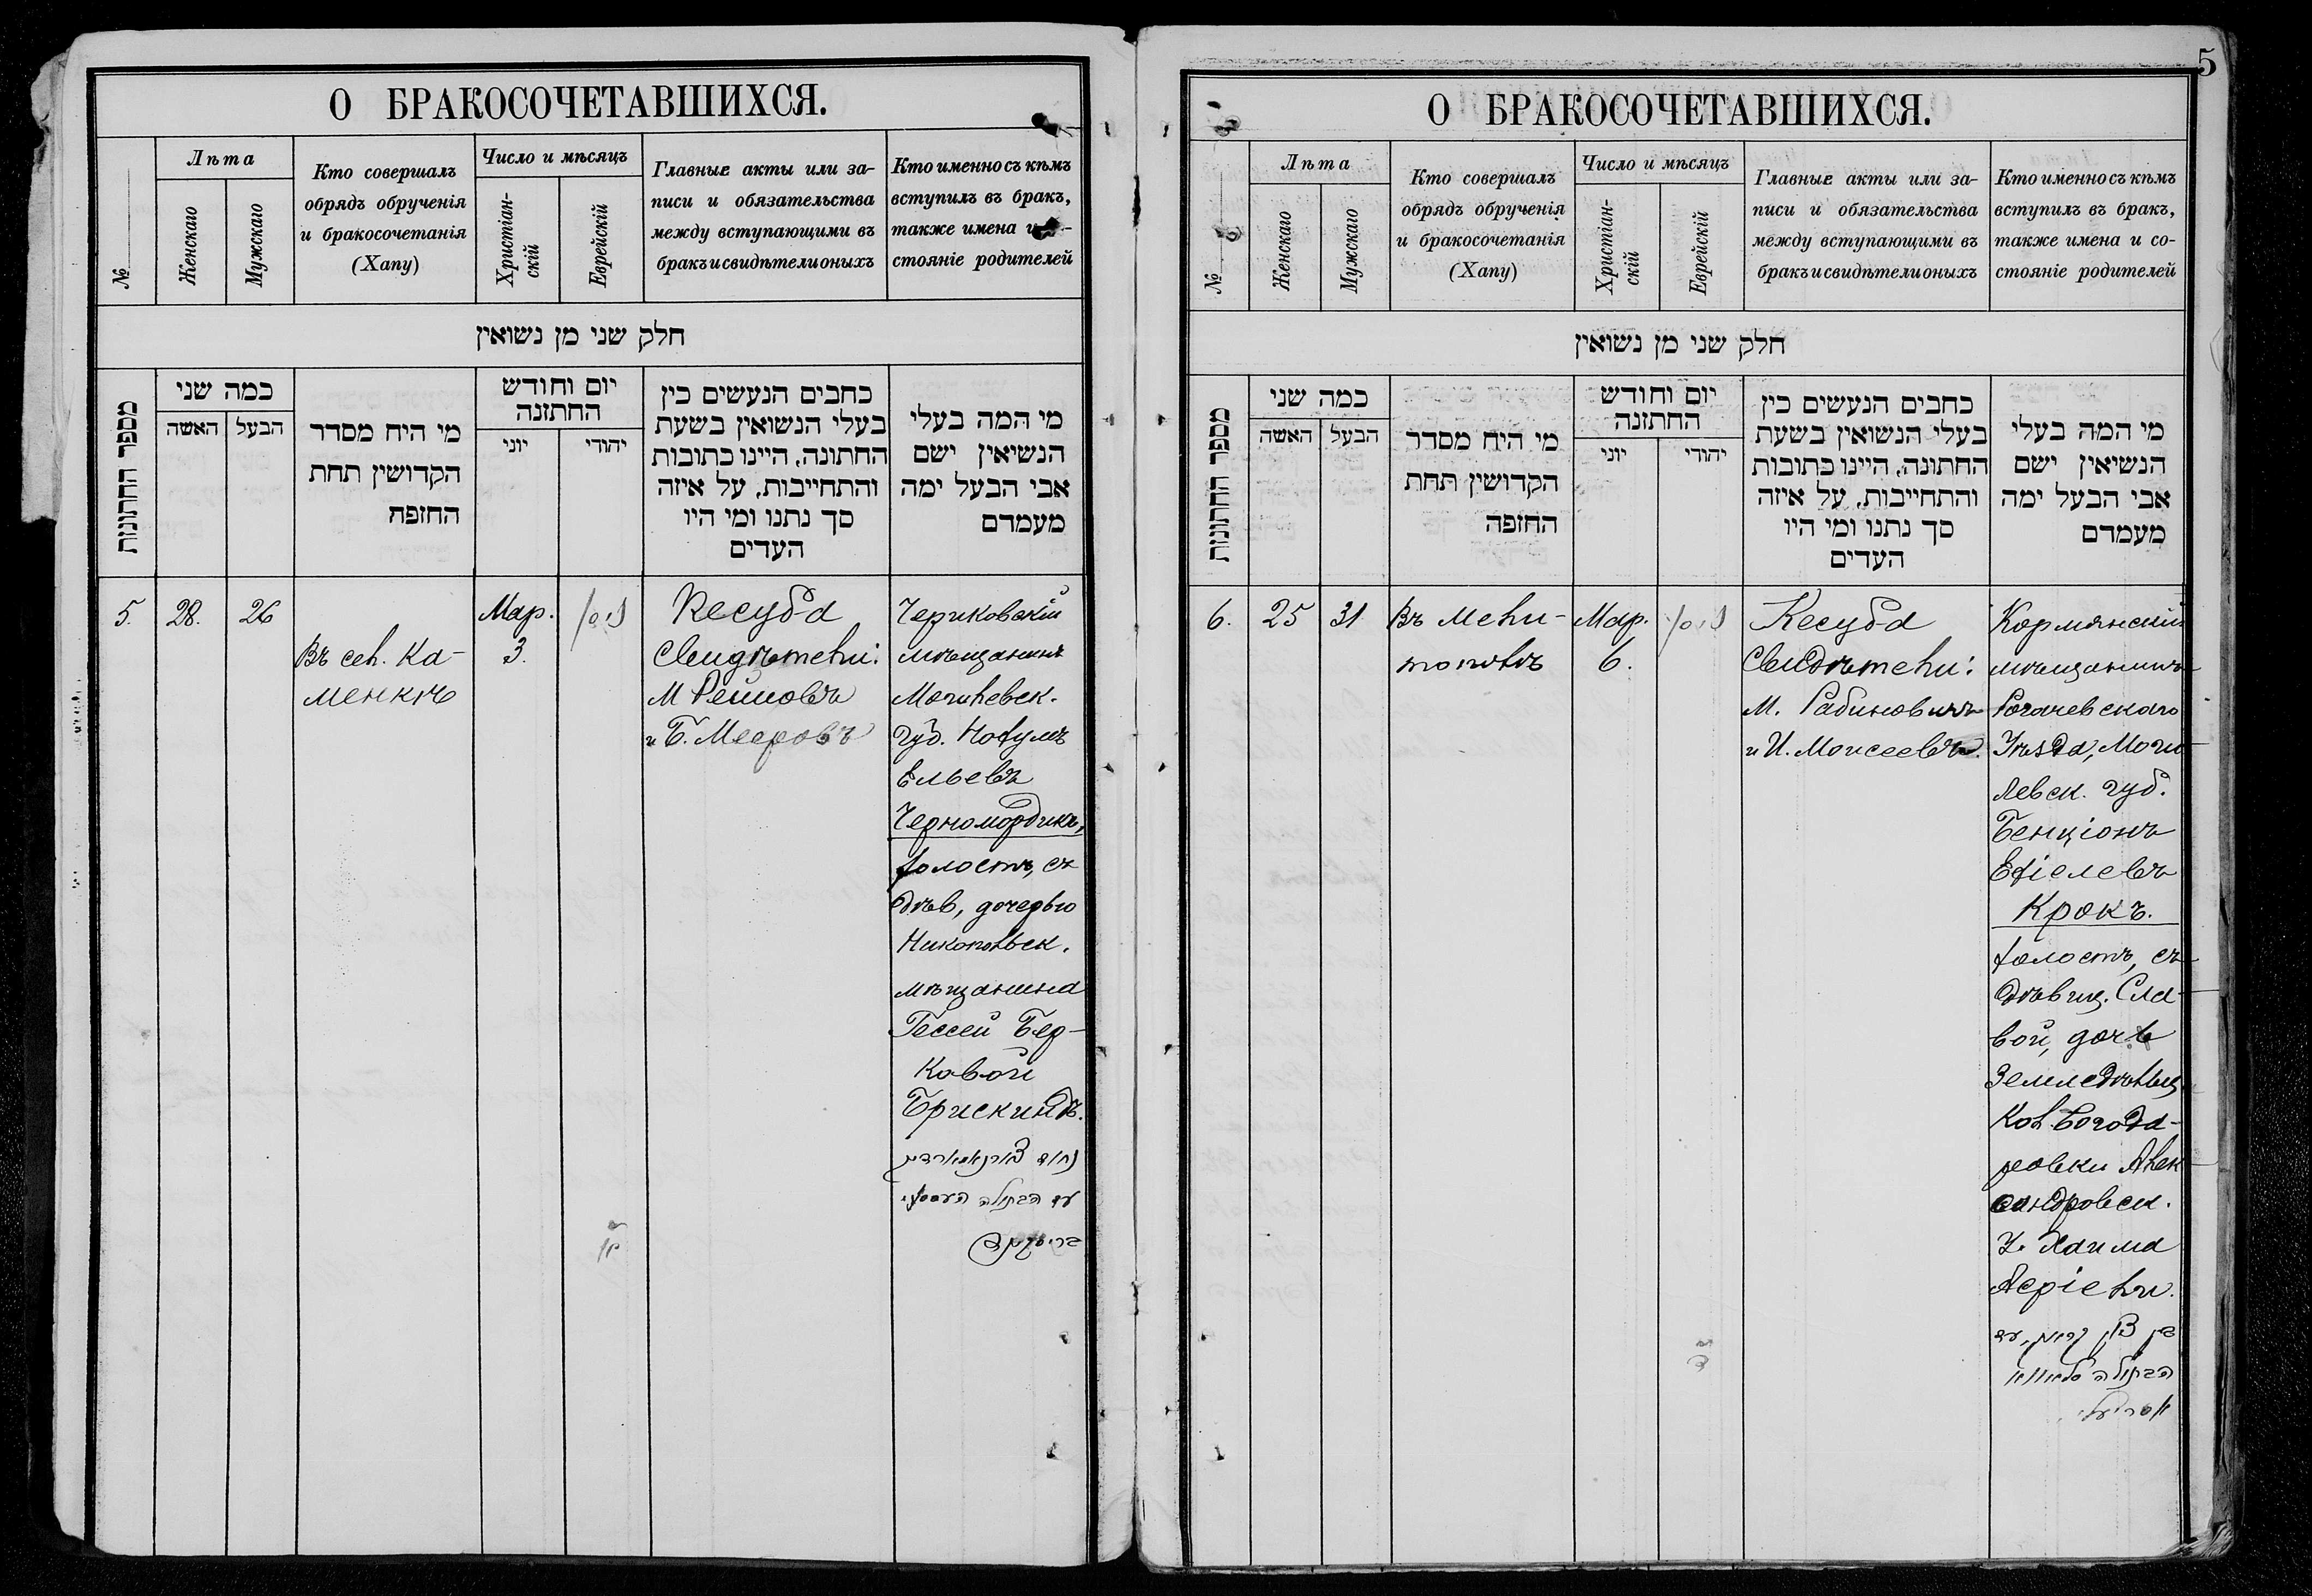 О БРАКОСОЧЕТАВШИХСЯ.
№
Лѣта
Женскаго
Мужскаго
Кто совершалъ
обрядъ обрученія
и бракосочетанія
(Хапу)
Число и мѣсяцъ
Христіан-
скій
Еврейскій
Главные акты или за-
писи и обязательства
между вступающими въ
бракъ и свидѣтели оныхъ
Кто именно съ кѣмъ
вступилъ въ бракъ,
также имена и
стояніе родителей
חלק שני מן נשואין
מספר החתונות
כמה שני
האשה
הבעל
מי היה מסדר
הקדושין תחת
החופה
יום וחודש
החתונה
יוני
יהודי
כתבים הנעשים בין
בעלי הנשואין בשעת
החתונה, היינו כתובות
והתחייבות, על איזה
סך נתנו ומי היו
העדים
מי המה בעלי
הנשיאין ישם
אבי הבעל ימה
מעמדם
5.
28.
26
Въ сел. Ка-
менкѣ
Мар.
3.
ניסן
יא
Кесуб-а
Свидѣтели:
М Рейновъ
и Б. Мееровъ
Чериковскій
мѣщанинъ
Могилевск.
губ. Нохумъ
Ельевъ
Черномордикъ,
холостъ, съ
дѣв, дочерью
Никопольск.
мѣщанина
Гессей Бер-
ковой
Брискиндъ.
נחום
עם הבתולה העססע
בריסקינד
5
О БРАКОСОЧЕТАВШИХСЯ.
№
Лѣта
Женскаго
Мужскаго
Кто совершалъ
обрядъ обрученія
и бракосочетанія
(Хапу)
Число и мѣсяцъ
Христіан-
скій
Еврейскій
Главные акты или за-
писи и обязательства
между вступающими въ
бракъ и свидѣтели оныхъ
Кто именно съ кѣмъ
вступилъ въ бракъ,
также имена и со-
стояніе родителей
חלק שני מן נשואין
מספר החתונות
כמה שני
האשה
הבעל
מי היה מסדר
הקדושין תחת
החופה
יום וחודש
החתונה
יוני
יהודי
כתבים הנעשים בין
בעלי הנשואין בשעת
החתונה, היינו כתובות
והתחייבות, על איזה
סך נתנו ומי היו
העדים
מי המה בעלי
הנשיאין ישם
אבי הבעל ימה
מעמדם
6.
25
31
Въ Мели-
тополѣ
Мар.
6.
ניסן
Кесуб-а
Свидѣтели:
М. Рабиновичъ
и И. Моисеевъ.
Кормянскій
мѣщанинъ
Рогачевскаго
Уѣзда, Моги-
левск. губ.
Бенціонъ
Ехіелевъ
Крокъ.
холостъ, съ
дѣвиц. Сла-
вой, дочь
Земледѣльц.
Кол. Богода-
ровки Алек-
сандровск.
У. Хаима
Асріели.
בן ציון קראק, עם
הבתולה סלאווא
אסריעלי